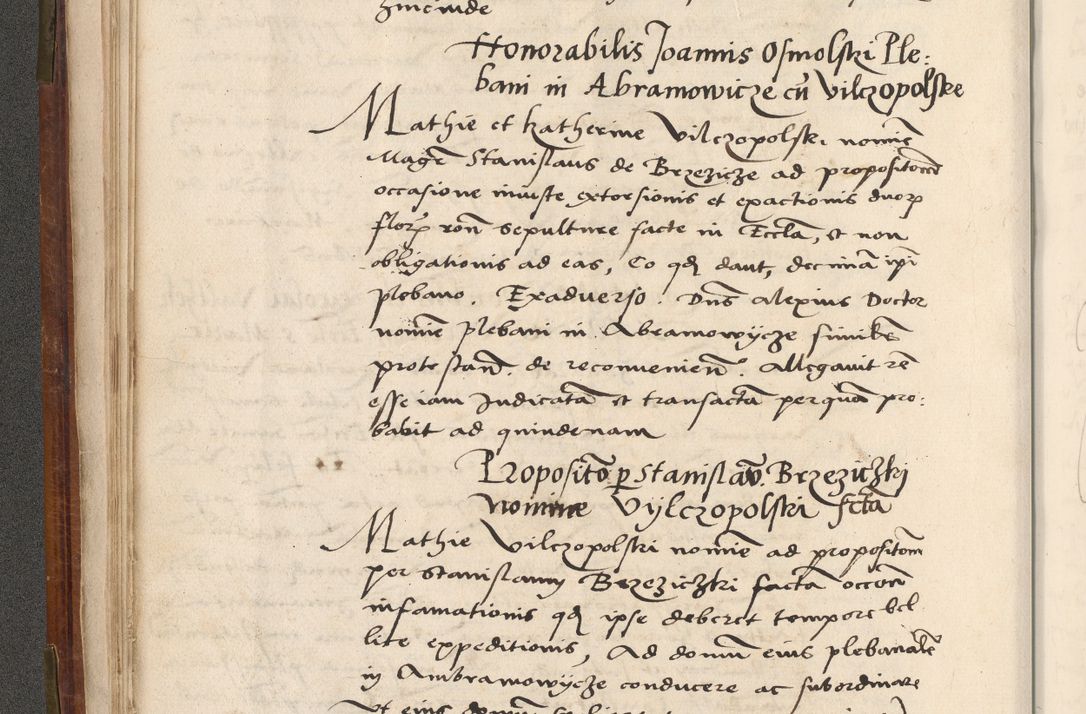 Honorabilis Joannis Osmolski Ple:
bani in Abramowicze cū Vilczopolske
Mathie et Katherine Vilczopolski noīe
Magrᷤ Stanislaus de Brzezicze ad propositoēē
occasione iniuste extorsionis et exactionis duorꝝ
florꝝ roñ sepulture facte in Eccla, et non
obligationis ad eas, Eo qđ dant, decimā ipī
plebano. Exadverso. Dns̄ Alexius Doctor
noīe plebani in Abramowycze similēs
protestañ. de reconvenieñ. Allegavit rē
esse iam Judicatā et transactā per quā pro:
babit ad quindenam
Propositō ꝑ Stanislaō Brzeziczki
nomine Vylczopolski fctā
Mathie Vilczopolski noīe ad propositom̄
per Stanislaum Brzeziczki factā occoē
infamationis qđ ipse deberet tempore bel
lice expeditionis, Ad domū eius plebanalē
in Ambramowycze conducere ac subordinare